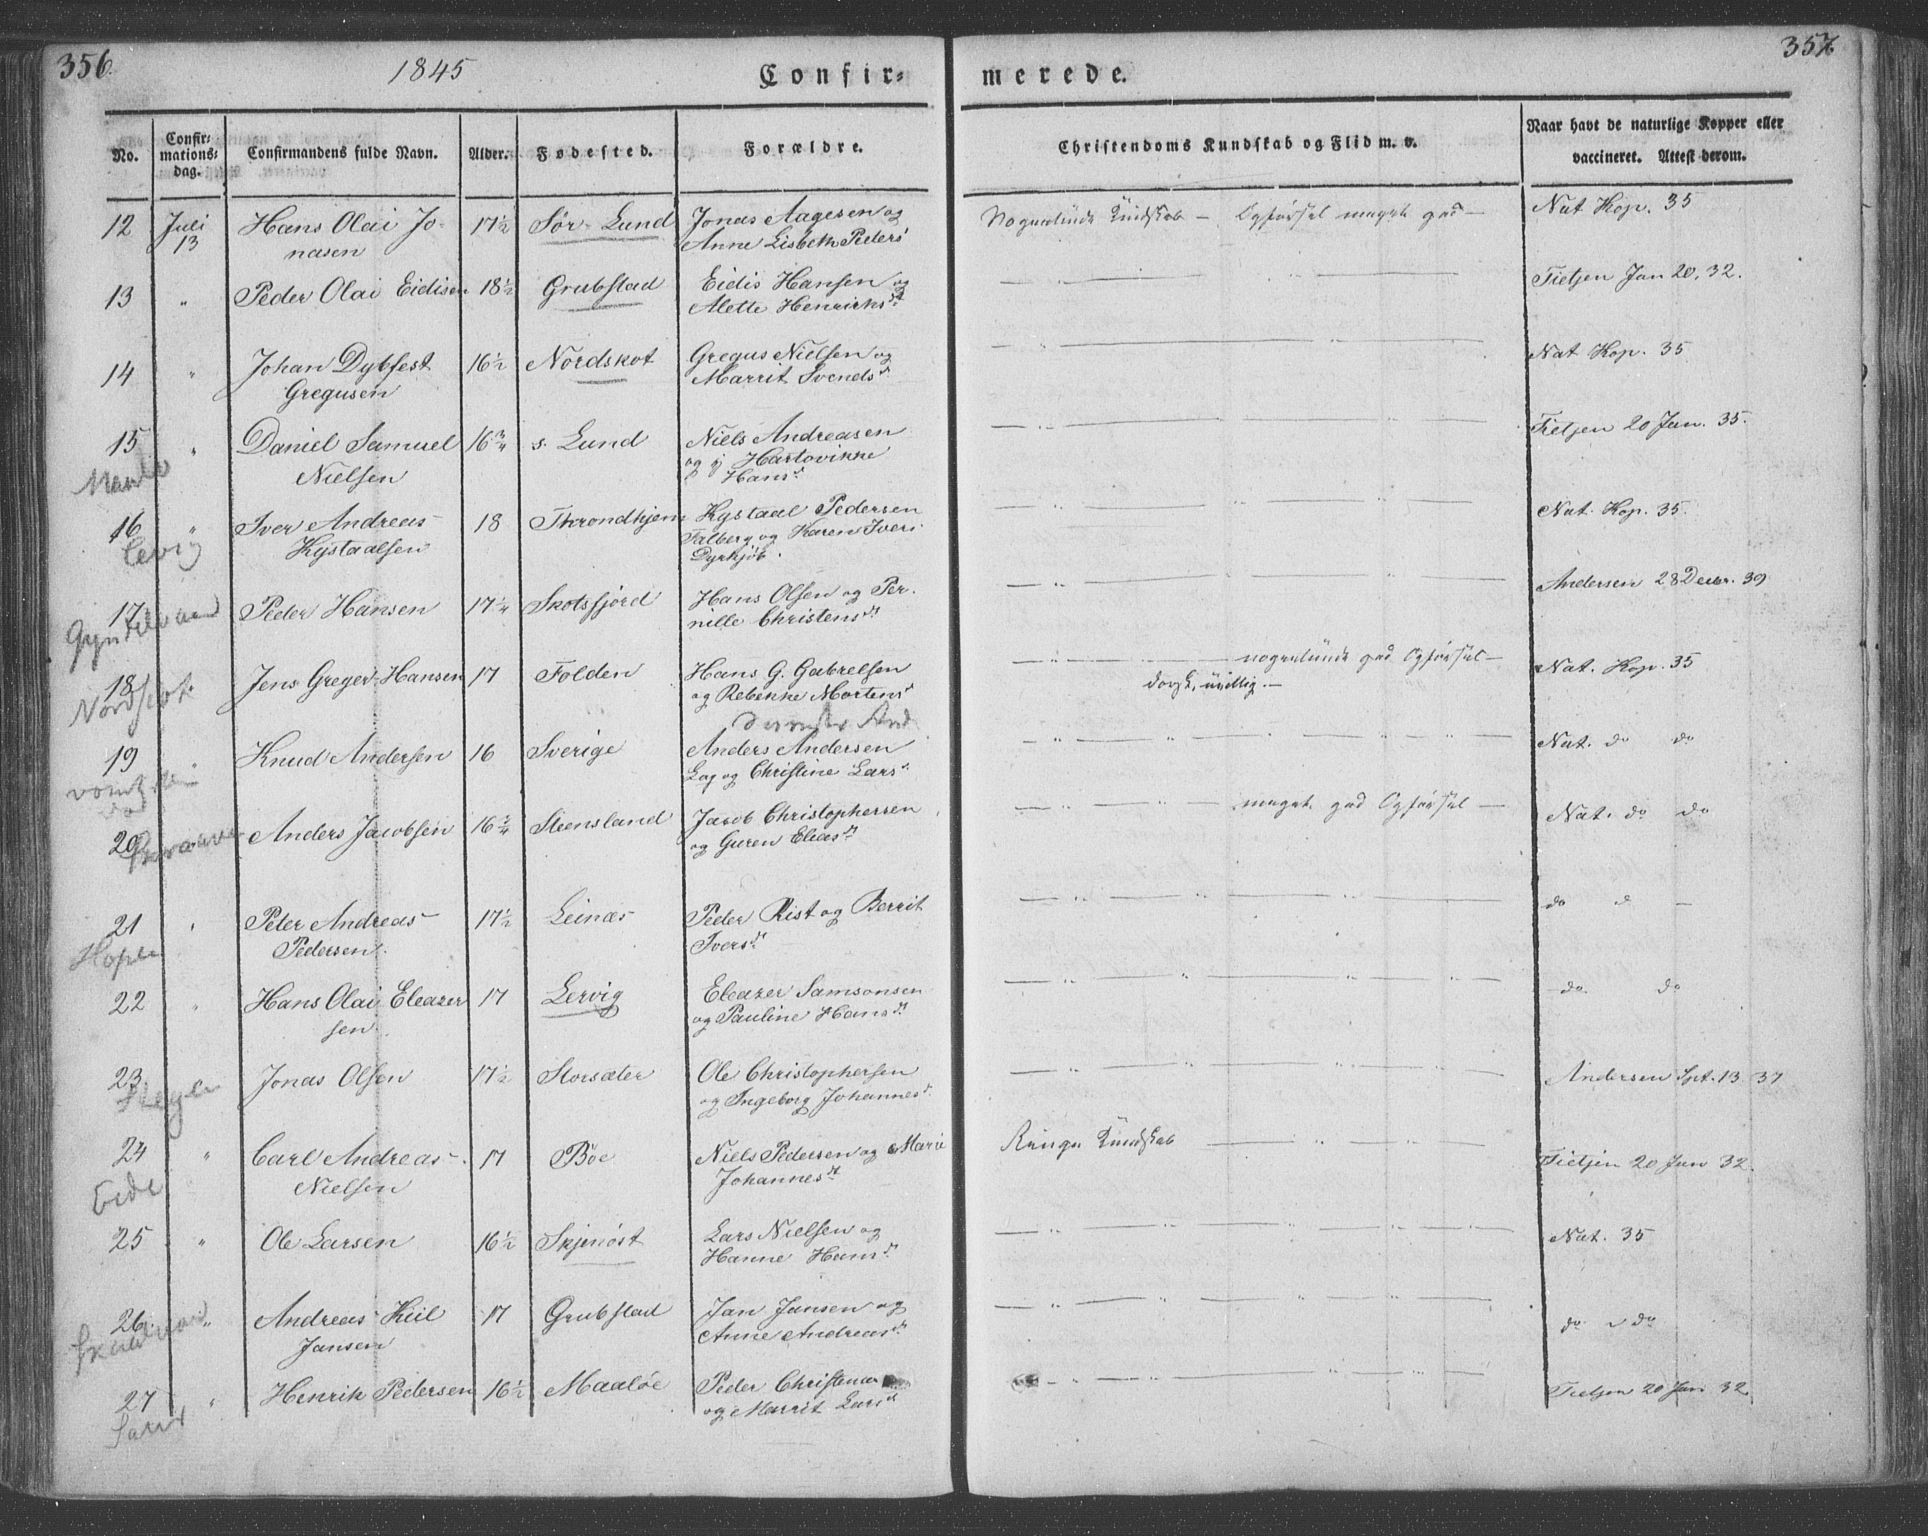 356.
1845
Confir-
merede.
357
No.
Confir-
mations-
dag.
Confirmandens fulde Navn.
Alder.
Fødested.
Forældre.
Christendoms Kundskab og Flid m. v.
Naar havt de naturlige Kopper eller
vaccineret. Attest derom.
12 Juli Hans Olai Jo- 17½ Sør-Lund Jonas Aagesen og Nogenlunde Kundskab — Opførsel meget god — Nat Kop. 35
13 nasen Anne Lisbeth Peders
13 " Peder Olai Eidisen 18½ Grubstad Eidis Hansen og Tietjen Jan 20. 32.
Alette Henrichsdt
14 " Johan Dybfest 16½ Nordskot Gregus Nielsen og Nat Kop. 35
Gregusen Marrit Svendsdt
15 " Daniel Samuel 16¾ s. Lund Niels Andreasen Tietjen 20 Jan. 35.
Nielsen og Hartovikke
Hansdt
16 " Iver Andreas 18 Throndhjem Kystaal Pedersen Nat. Kop. 35.
Levig Kystaalsen Falberg og Karen Ivers
Dyrhjøb.
17 Peder Hansen 17¼ Skotsfjord Hans Olsen og Per- Andersen 28 Decbr. 39
nille Christensdt
18 Jens Greger Hansen 17 Folden Hans G. Gabrelsen nogenlunde god Opførsel — Nat. Kop. 35
Nordskot. og Rebekke Mortensd dorsk, uvillig. —
19 " Knud Andersen 16 Sverige Anders Andersen Nat. do do
Lap og Christine Larsd.
20 " Anders Jacobsen 16¾ Steensland Jacob Christophersen meget god Opførsel — Nat. do do
og Guren Eliasdt
21 " Peter Andreas 17½ Leinæs Peder Rist og Berrit do d —
Pedersen. Iversdt
22 " Hans Olai Eleazer 17 Lervig Eleazer Samsonsen do. do
sen. og Pauline Hansdt
23 Jonas Olsen 17½ Storsæter Ole Christophersen Andersen Spt. 13 37
og Ingeborg Johannesd.
24 " Carl Andreas 17 Böe Niels Pedersen og Marie Ringe Kundskab Tietjen 20 Jan 32.
Eide Nielsen Johannesdt
25 " Ole Larsen 16½ Skjenöst Lars Nielsen og Nat. 35
Hanne Hansdt
26 " Andreas Kiil 17 Grubstad Jan Jansen og do do
Jansen Anne Andreasdt
27 " Henrik Pedersen 16½ Maalöe Peder Christensen Tietjen 20 Jan 32.
og Marrit Larsd